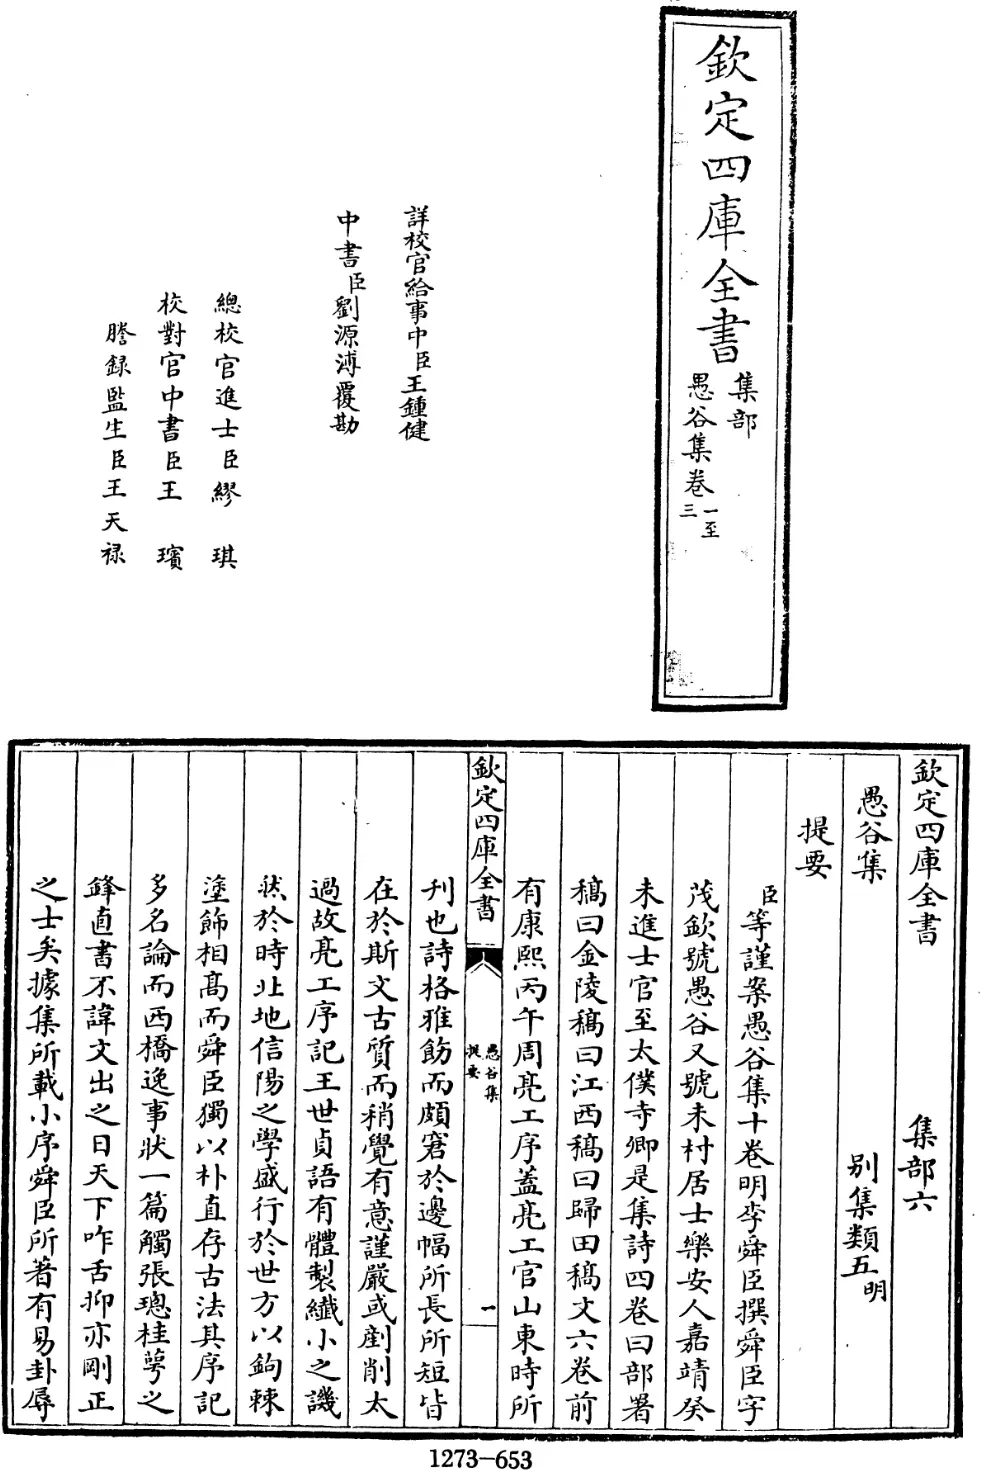 欽定四庫全書
集部
愚谷集卷一至三
詳校官給事中臣王鍾健
中書臣劉源溥覆勘
總校官進士臣繆琪
校對官中書臣王璸
謄録監生臣王天禄
欽定四庫全書 集部六
愚谷集 别集類五明
提要
臣等謹案愚谷集十卷明李舜臣撰舜臣字
茂欽號愚谷又號未村居士樂安人嘉靖癸
未進士官至太僕寺卿是集詩四卷曰部署
稿曰金陵稿曰江西稿曰歸田稿文六卷前
有康熙丙午周亮工序蓋亮工官山東時所
欽定四庫全書 愚谷集提要 一
刋也詩格雅飭而頗窘於邊幅所長所短皆
在於斯文古質而稍覺有意謹嚴或劃削太
過故亮工序記王世貞語有體製纎小之譏
然於時北地信陽之學盛行於世方以鉤棘
塗飾相髙而舜臣獨以朴直存古法其序記
多名論而西橋逸事狀一篇觸張璁桂萼之
鋒直書不諱文出之日天下咋舌抑亦剛正
之士矣據集所載小序舜臣所著有易卦辱
1273-653